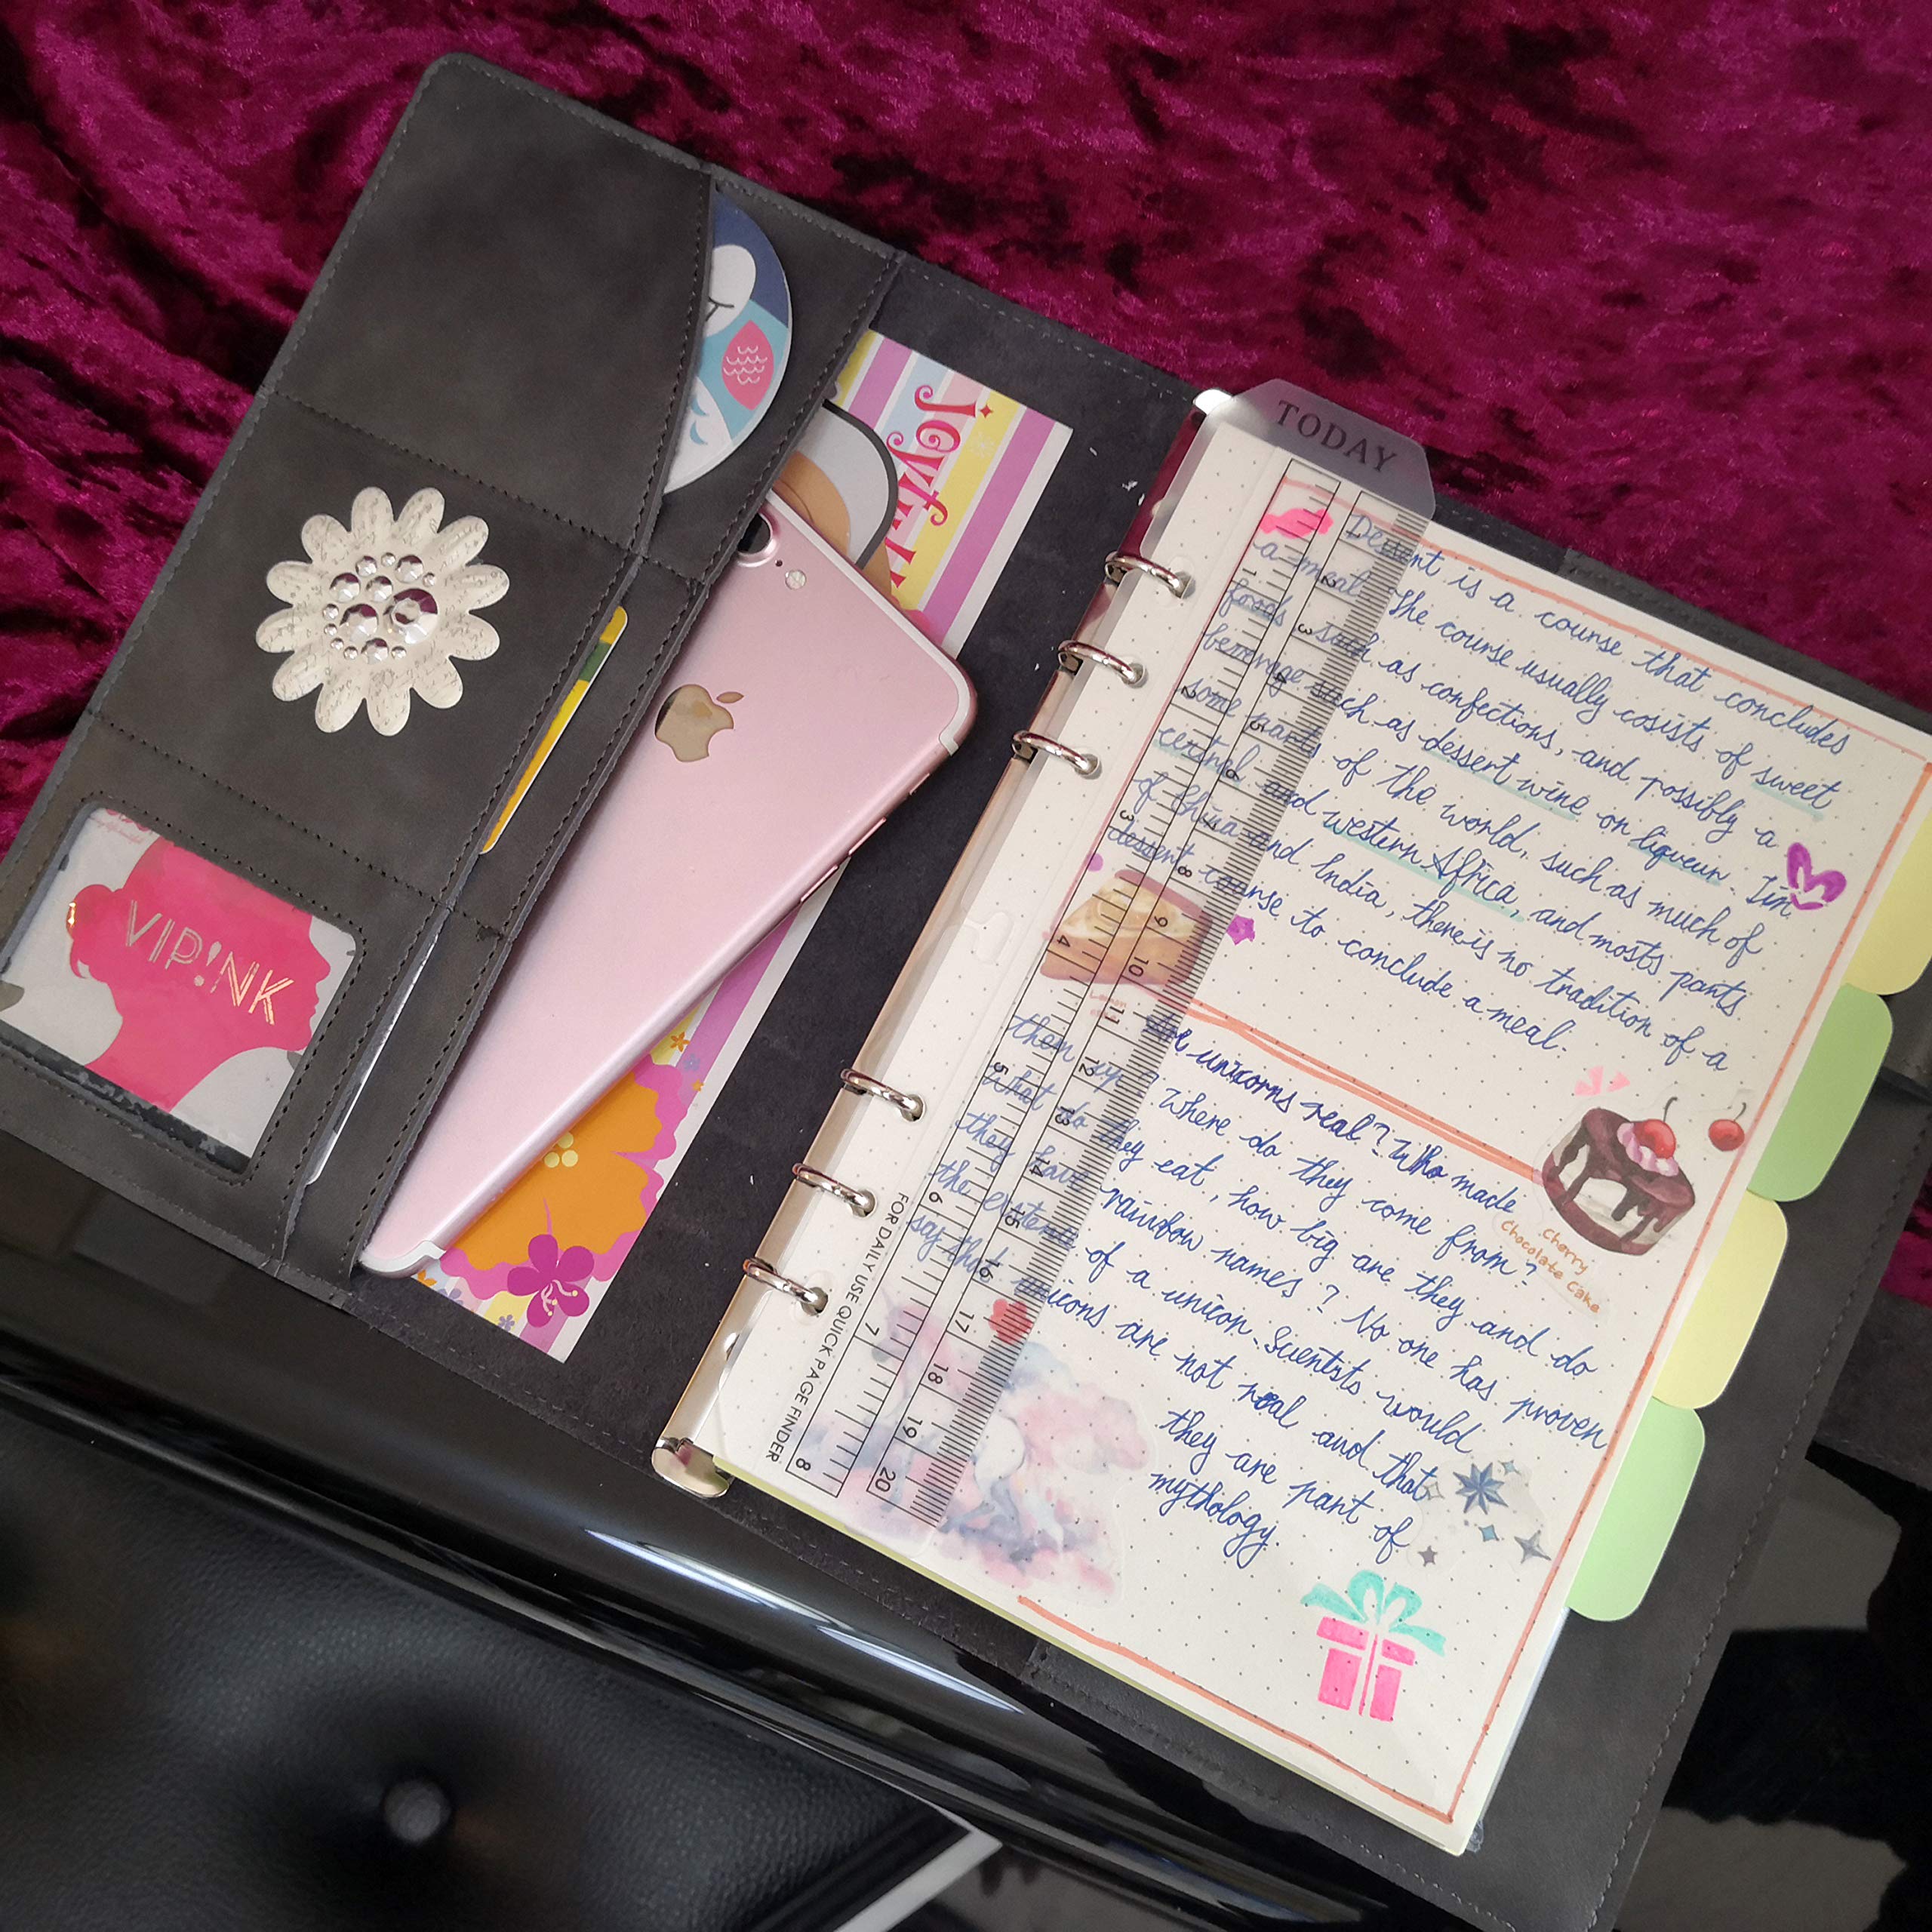 VIP!NK
Joyful
TODAY
Dessert is a course that concludes
a meal. The course usually cosists of sweet
foods such as confections, and possibly a
beverage such as dessert wine or liqueur. Iin
some parts of the world, such as much of
central and western Africa, and mosts parts
of China and India, there is no tradition of a
dessert course to conclude a meal.
Lemon
Are unicorns real? Who made
them up? Where do they come from?
What do they eat, how big are they and do
they have rainbow names? No one has proven
the existence of a unicon. Scientists would
say that unicons are not real and that
they are part of
mythology.
Cherry
Chocolate Cake
FOR DAILY USE QUICK PAGE FINDER
1 2 3 4 5 6 7 8
2 3 5 6 7 8 9 10 11 12 13 14 15 16 17 18 19 20